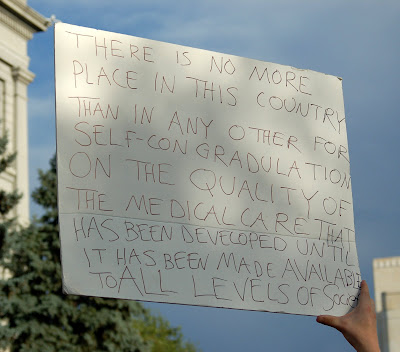 THERE IS NO MORE
PLACE IN THIS COUNTRY
THAN IN ANY OTHER FOR
SELF-CONGRADULATION
ON THE QUALITY OF
THE MEDICAL CARE THAT
HAS BEEN DEVECOPED UNTIL
IT HAS BEEN MADE AVAILABLE
TO ALL LEVELS OF SOCIETY